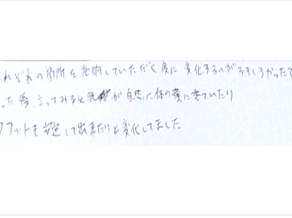 れぞれの箇所を施術していただく度に変化するのがおもしろかったで
った後、立ってみると洗濯が自然に体の横に来ていたり
フットも安定して出来たりと変化してました